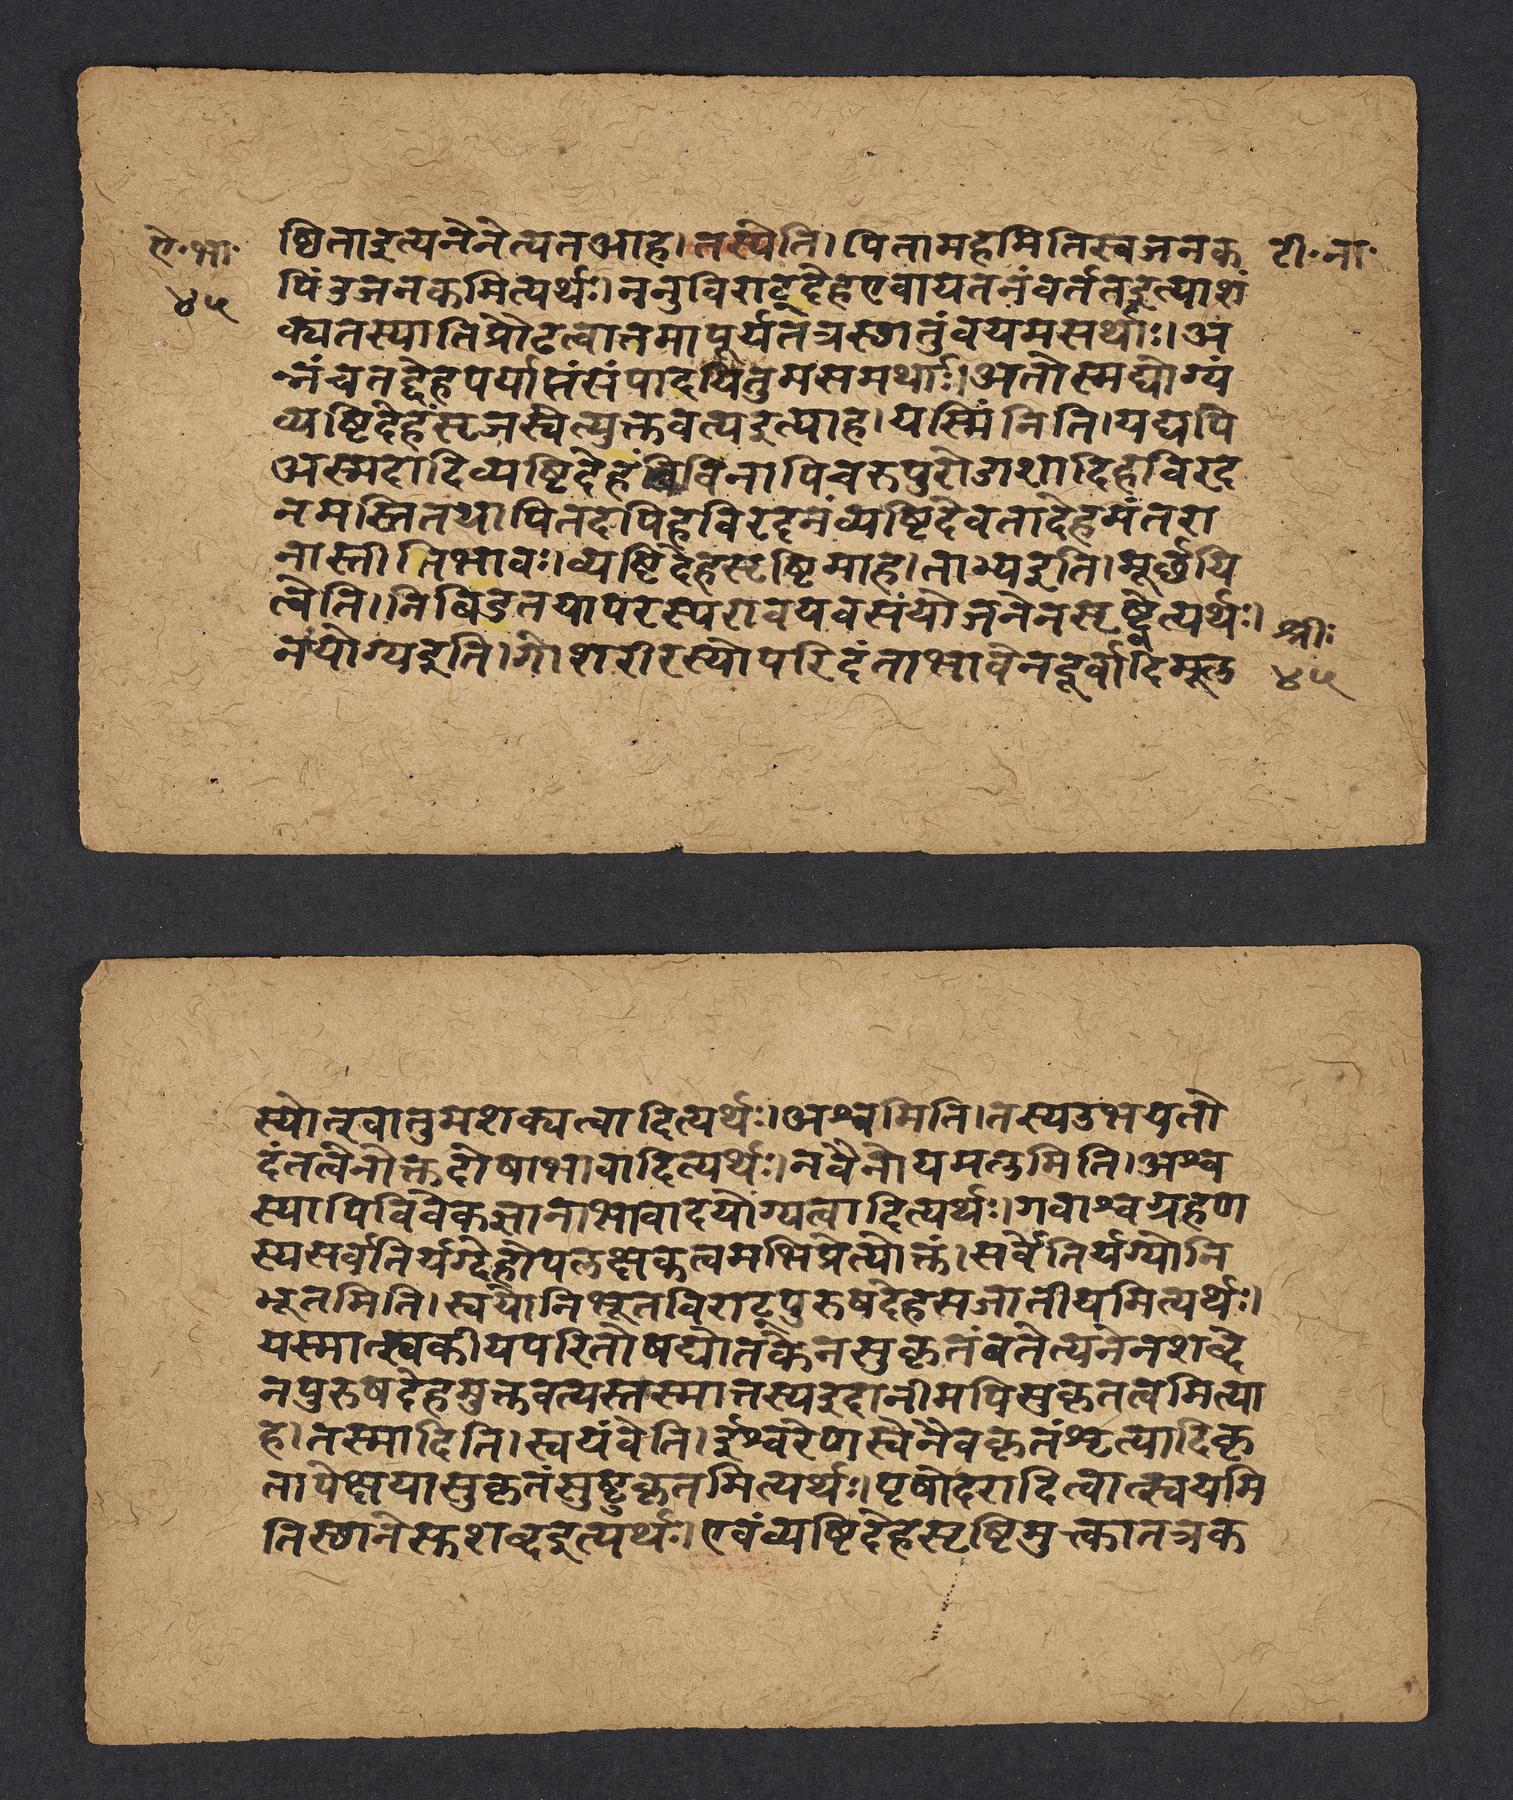 ऐ·भा·
४५
ष्ठिताइत्यनेनेत्यतआह।तस्येति।पितामहमितिस्वजनक
टी·ना·
पिंडजनकमित्यर्थः।ननुविराट्देहएवायतनंवर्ततइत्याशं
क्यतस्यातिप्रौढत्वात्तमापूर्यतत्रस्छातुंवयमसर्थाः।अ
न्नंचतद्देहपर्याप्तंसंपादयितुमसमर्थाः।अतोस्मद्योग्यं
व्यष्टिदेहंसृजस्वेत्युक्तवत्यइत्याह।यस्मिंनिति।यद्यपि
अस्मदादिव्यष्टिदेहंविनापिचरुपुरोडाशादिहविरद
नमस्तितथापितदपिहविरदनंव्यष्टिंदेवतादेहमंतरा
नास्तीतिभावः।व्यष्टिदेहसृष्टिमाह।ताभ्यइति।मूर्छयि
त्वेति।निबिडतयापरस्परावयवसंयोजनेनसृष्ट्वेत्यर्थः।
नंयोग्यइति।गोशरीरस्योपरिदंताभावेनदूर्वादिमूल
श्रीः
४५
स्योत्खातुमशक्यत्वादित्यर्थः।अश्वमिति।तस्यउभयतो
दंतत्वेनोक्तदोषाभावादित्यर्थः।नवैनोयमलमिति।अश्व
स्यापिविवेकज्ञानाभावादयोग्यत्वादित्यर्थः।गवाश्वग्रहण
स्यसर्वतिर्यग्देहोपलक्षकत्वमभिप्रेत्योक्तं।सर्वेतिर्यग्योनि
भूतमिति।स्वयोनिभूतविराट्पुरुषदेहसजातीयमित्यर्थः।
यस्मात्स्वकीयपरितोषद्योतकेनसुकृतंबतेत्यनेनशब्दे
नपुरुषदेहमुक्तवत्यस्तस्मात्तस्यइदानीमपिसुकृतत्वमित्या
ह।तस्मादिति।स्वयंवेति।ईश्वरेणस्वेनैवकृतंभृत्यादिकृ
तापेक्षयासुकृतंसुष्ठुकृतमित्यर्थः।पृषोदरादित्वात्स्वयमि
तिस्छानेसुशब्दइत्यर्थः।एवंव्यष्टिदेहसृष्टिमुक्त्वातत्रक